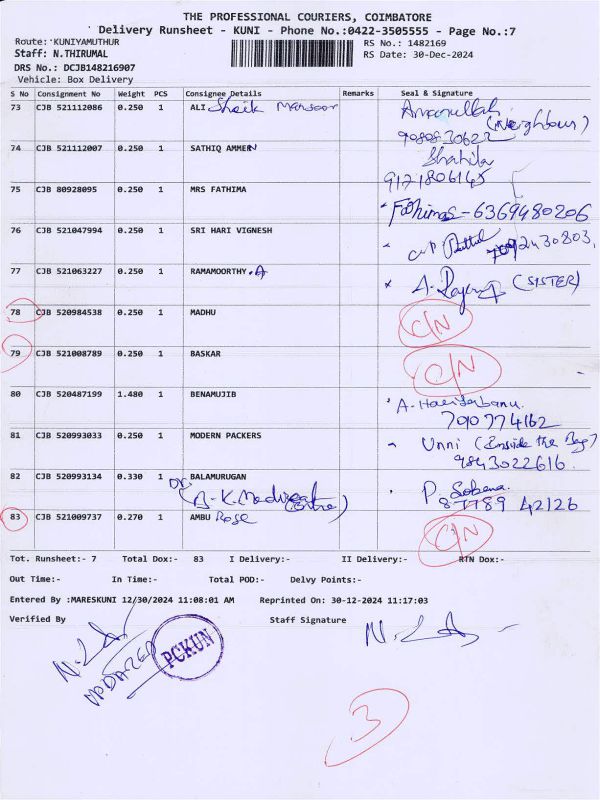 THE PROFESSIONAL COURIERS, COIMBATORE
Delivery Runsheet - KUNI - Phone No.:0422-3505555 - Page No.:7
Route: KUNIYAMUTHUR
RS No.: 1482169
Staff: N.THIRUMAL
RS Date: 30-Dec-2024
DRS No.: DCJB148216907
Vehicle: Box Delivery
S No Consignment No Weight PCS Consignee Details Remarks Seal & Signature
73 CJB 521112086 0.250 1 ALI Sheik Mansoor Amanullah
(Neighbour)
9089830622
74 CJB 521112007 0.250 1 SATHIQ AMMEN Shahila
9171806145
75 CJB 80928095 0.250 1 MRS FATHIMA Fathima - 6369480206
76 CJB 521047994 0.250 1 SRI HARI VIGNESH 7092430803
77 CJB 521063227 0.250 1 RAMAMOORTHY .A A. (SISTER)
78 CJB 520984538 0.250 1 MADHU C/N
79 CJB 521008789 0.250 1 BASKAR C/N
80 CJB 520487199 1.480 1 BENAMUJIB A-
7090774162
81 CJB 520993033 0.250 1 MODERN PACKERS Unni (Inside the Bag)
9843022616.
82 CJB 520993134 0.330 1 BALAMURUGAN P. Sobana
Dr. (B.K. Medical Centre) 87789 42126
83 CJB 521009737 0.270 1 AMBU Rose C/N
Tot. Runsheet:- 7 Total Dox:- 83 I Delivery:- II Delivery:- RTN Dox:-
Out Time:- In Time:- Total POD:- Delvy Points:-
Entered By :MARESKUNI 12/30/2024 11:08:01 AM Reprinted On: 30-12-2024 11:17:03
Verified By Staff Signature
UPDATED
PCKUN
3